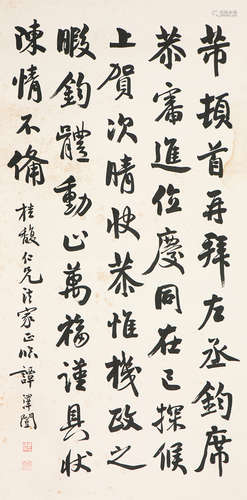 芾頓首再拜左丞鈞席
恭審進位慶同在己探候
上賀次晴快恭惟機政之
暇鈞體動止萬福謹具狀
陳情不備
桂馥仁兄法家正臨 譚澤闓